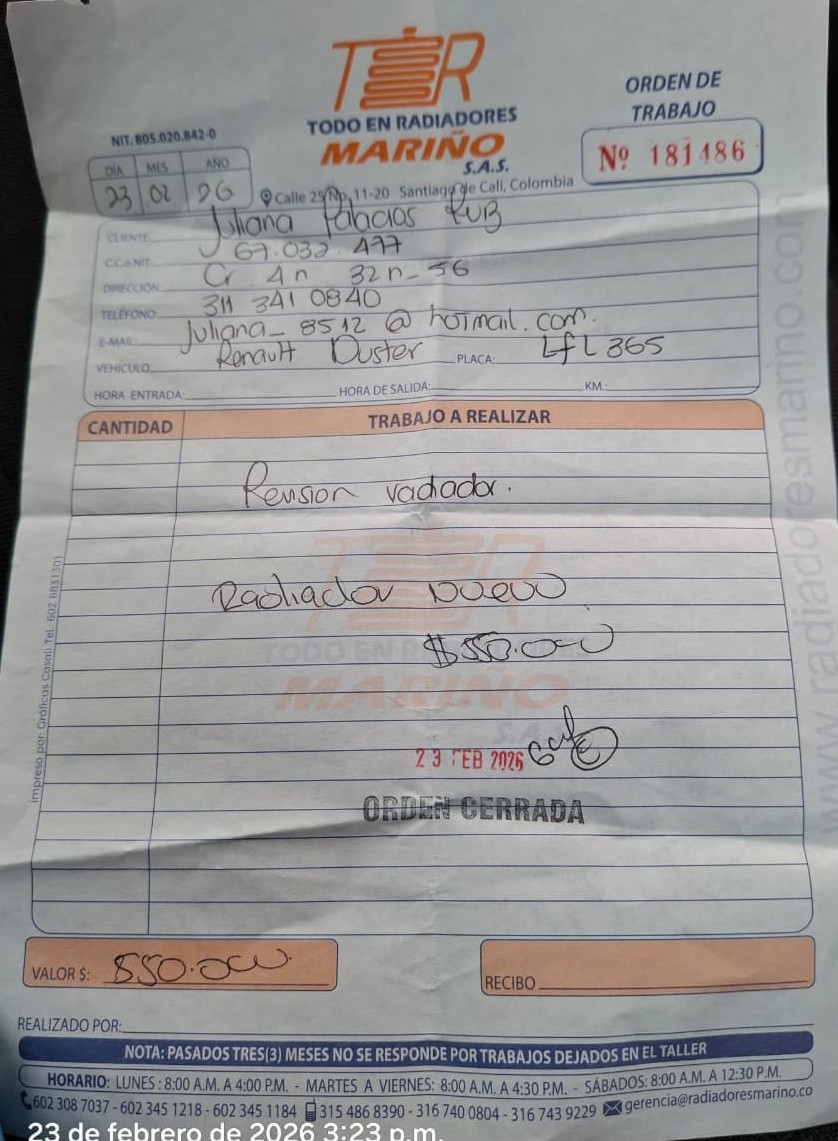 TR
TODO EN RADIADORES
MARIÑO
S.A.S.
ORDEN DE
TRABAJO
Nº 181486
NIT. 805.020.842-0
DÍA MES AÑO
23 02 26
Calle 25 Nº 11-20 Santiago de Cali, Colombia
CLIENTE: Juliana Palacios Rub
CC o NIT: 67.032.477
DIRECCIÓN: Cr 4n 32n-56
TELÉFONO: 311 341 0840
E-MAIL: Juliana_8512@hotmail.com.
VEHÍCULO: Renault Duster PLACA: LfL 365
HORA ENTRADA: HORA DE SALIDA: KM:
CANTIDAD TRABAJO A REALIZAR
Revision radiador.
TR
Radiador nuevo
$550.000
TODO EN RADIADORES
MARIÑO
S.A.S.
23 FEB 2026
ORDEN CERRADA
www.radiadoresmarino.com
Impreso por: Gráficas Casali Tel. 602 8831501
VALOR $: 550.000
RECIBO
REALIZADO POR:
NOTA: PASADOS TRES(3) MESES NO SE RESPONDE POR TRABAJOS DEJADOS EN EL TALLER
HORARIO: LUNES : 8:00 A.M. A 4:00 P.M. - MARTES A VIERNES: 8:00 A.M. A 4:30 P.M. - SÁBADOS: 8:00 A.M. A 12:30 P.M.
602 308 7037 - 602 345 1218 - 602 345 1184 315 486 8390 - 316 740 0804 - 316 743 9229 gerencia@radiadoresmarino.co
23 de febrero de 2026 3:23 p.m.